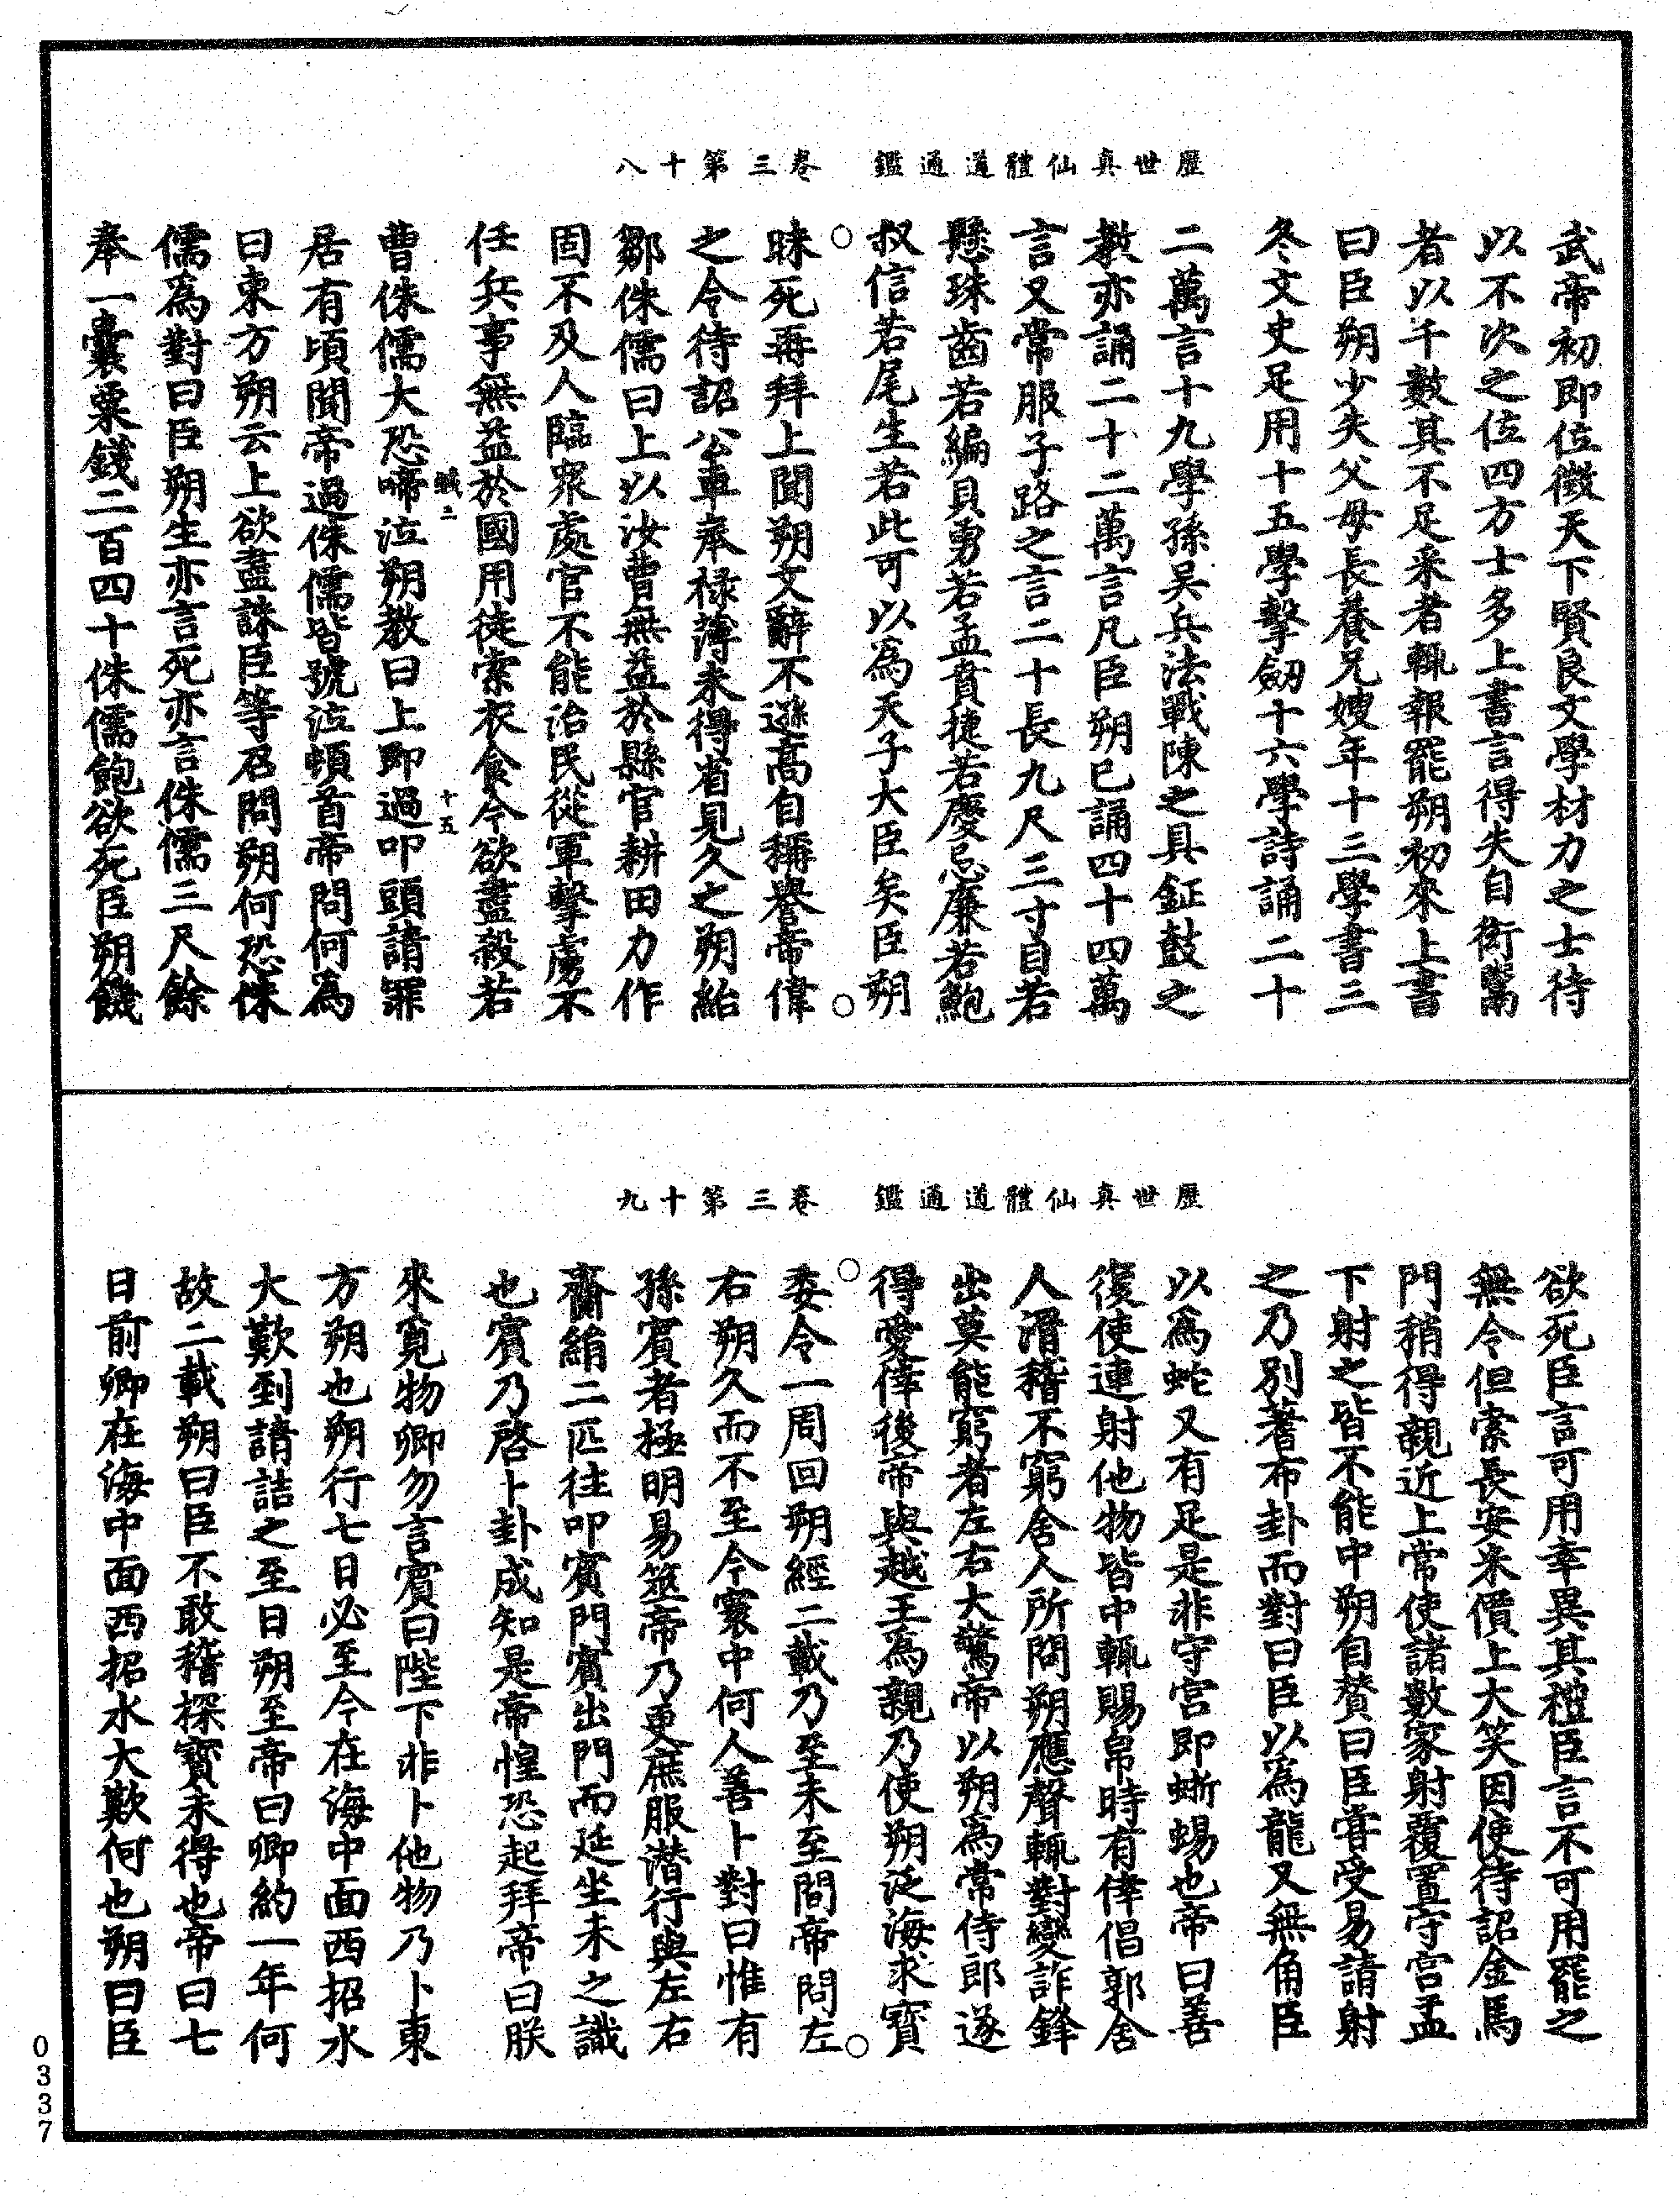 歷世真仙體道通鑑　卷三第十八
武帝初即位徵天下賢良文學材力之士待
以不次之位四方士多上書言得失自衒鬻
者以千數其不足采者輒報罷朔初來上書
曰臣朔少失父母長養兄嫂年十三學書三
冬文史足用十五學擊劒十六學詩誦二十
二萬言十九學孫吳兵法戰陳之具鉦鼓之
教亦誦二十二萬言凡臣朔已誦四十四萬
言又常服子路之言二十長九尺三寸自若
懸珠齒若編貝勇若孟賁捷若慶忌廉若鮑
叔信若尾生若此可以為天子大臣矣臣朔
昧死再拜上聞朔文辭不遜高自稱譽帝偉
之令待詔公車奉祿薄未得省見久之朔紿
鄒侏儒曰上以汝曹無益於縣官耕田力作
固不及人臨衆處官不能治民從軍擊虜不
任兵事無益於國用徒索衣食今欲盡殺若
十五
曹侏儒大恐啼泣朔教曰上即過叩頭請罪
居有頃聞帝過侏儒皆號泣頓首帝問何為
曰東方朔云上欲盡誅臣等召問朔何恐侏
儒為對曰臣朔生亦言死亦言侏儒三尺餘
奉一囊粟錢二百四十侏儒飽欲死臣朔饑
歷世真仙體道通鑑　卷三第十九
欲死臣言可用幸異其禮臣言不可用罷之
無令但索長安米價上大笑因使待詔金馬
門稍得親近上常使諸數家射覆置守宮盂
下射之皆不能中朔自贊曰臣甞受易請射
之乃別蓍布卦而對曰臣以為龍又無角臣
以為蛇又有足是非守宮即蜥蜴也帝曰善
復使連射他物皆中輒賜帛時有倖倡郭舍
人滑稽不窮舍人所問朔應聲輒對變詐鋒
出莫能窮者左右大驚帝以朔為常侍郎遂
得愛倖後帝與越王為親乃使朔泛海求寶
委令一周回朔經二載乃至未至間帝問左
右朔久而不至今寰中何人善卜對曰惟有
孫賓者極明易筮帝乃更庶服潜行與左右
齎絹二匹徃叩賓門賓出門而延坐未之識
也賓乃啓卜卦成知是帝惶恐起拜帝曰朕
來覓物卿勿言賓曰陛下非卜他物乃卜東
方朔也朔行七日必至今在海中面西招水
大歎到請詰之至日朔至帝曰卿約一年何
故二載朔曰臣不敢稽探寶未得也帝曰七
日前卿在海中面西招水大歎何也朔曰臣
0337